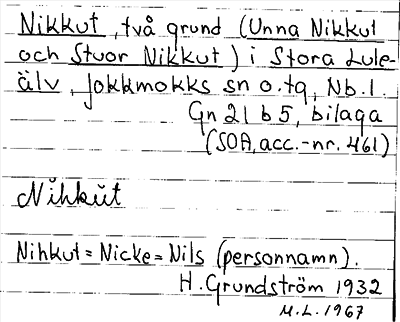 Nikkut, två grund (Unna Nikkut
och Stuor Nikkut) i Stora Lule-
älv, Jokkmokks sn o. tg, Nb. l.
Gn 21 b 5, bilaga
(SOA, acc.-nr. 461)
Nihkŭt
Nihkut = Nicke = Nils (personnamn).
H. Grundström 1932
M.L. 1967